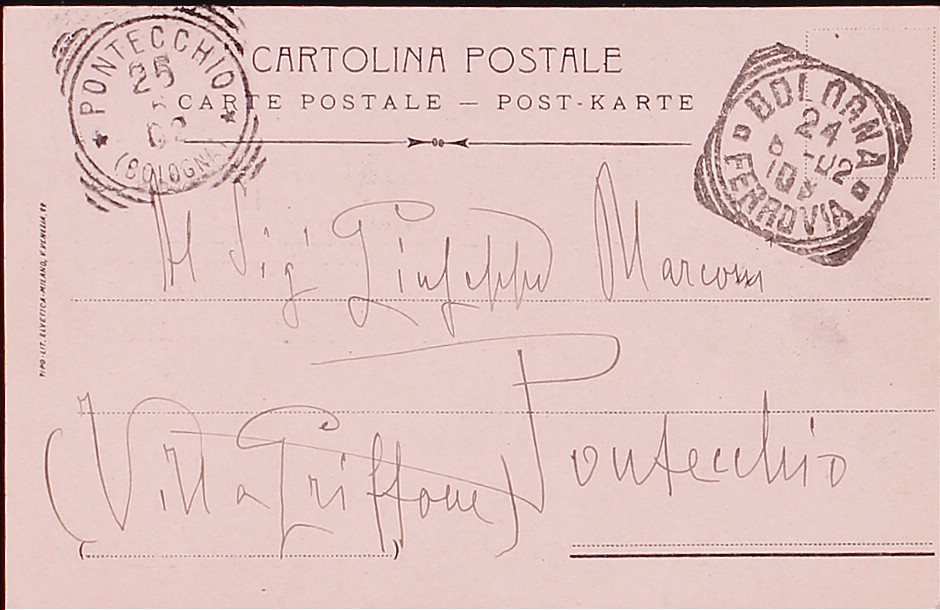 CARTOLINA POSTALE
CARTE POSTALE — POST-KARTE
PONTECCHIO
25
02
(BOLOGNA)
BOLOGNA
24
8-02
10S
FERROVIA
Al Sig Giuseppe Marconi
Pontecchio
(Villa Griffone)
TIPO-LIT. ELVETICA-MILANO, V. VENEZIA